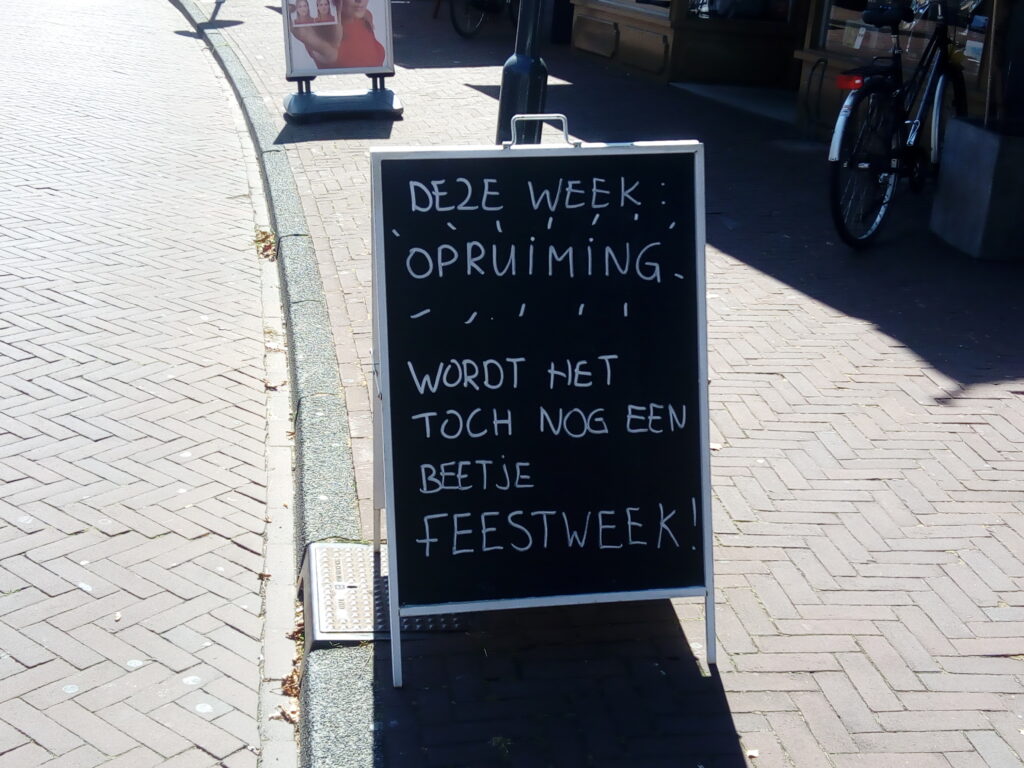 DEZE WEEK:
OPRUIMING
WORDT HET
TOCH NOG EEN
BEETJE
FEESTWEEK!